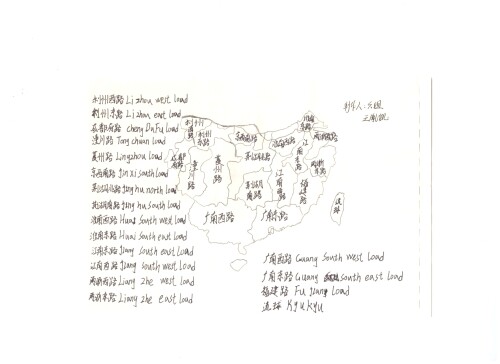 利州西路 Li zhou west load
利州东路 Li zhou east load
成都府路 cheng Du Fu Load
潼川路 Tong chuan load
夔州路 Lingzhou load
京西南路 Jin xi south load
荆湖北路 Jing hu north load
荆湖南路 Jing hu south load
淮南西路 Huai south west load
淮南东路 Huai south east load
江南东路 Jiang south east load
江南西路 Jiang south west load
两浙西路 Liang Zhe west load
两浙东路 Liang zhe east load
利州
西路
利州
东路
京西南路
淮南西路
淮南
东路
两浙西路
成都
府路
潼川路
夔州路
荆湖北路
荆湖南路
江南西路
江南东路
两浙东路
福建路
广南西路
广南东路
流球
制作人:
广南西路 Guang south west load
广南东路 Guang south east load
福建路 Fu jiang load
流球 Kyu Kyu